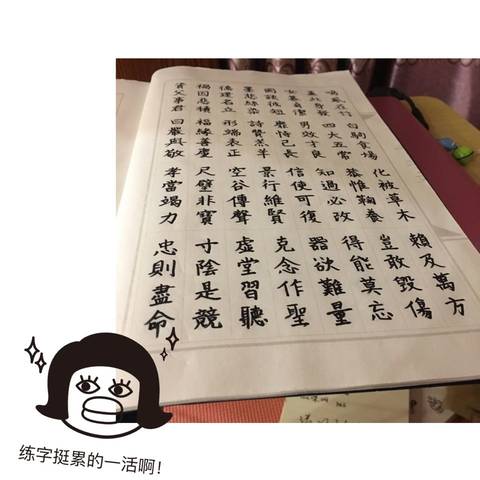 鳴鳳在竹白駒食場化被草木賴及萬方
蓋此身髮四大五常恭惟鞠養豈敢毀傷
女慕貞潔男效才良知過必改得能莫忘
罔談彼短靡恃己長信使可復器欲難量
墨悲絲染詩贊羔羊景行維賢克念作聖
德建名立形端表正空谷傳聲虛堂習聽
禍因惡積福緣善慶尺璧非寶寸陰是競
資父事君曰嚴與敬孝當竭力忠則盡命
练字挺累的一活啊!